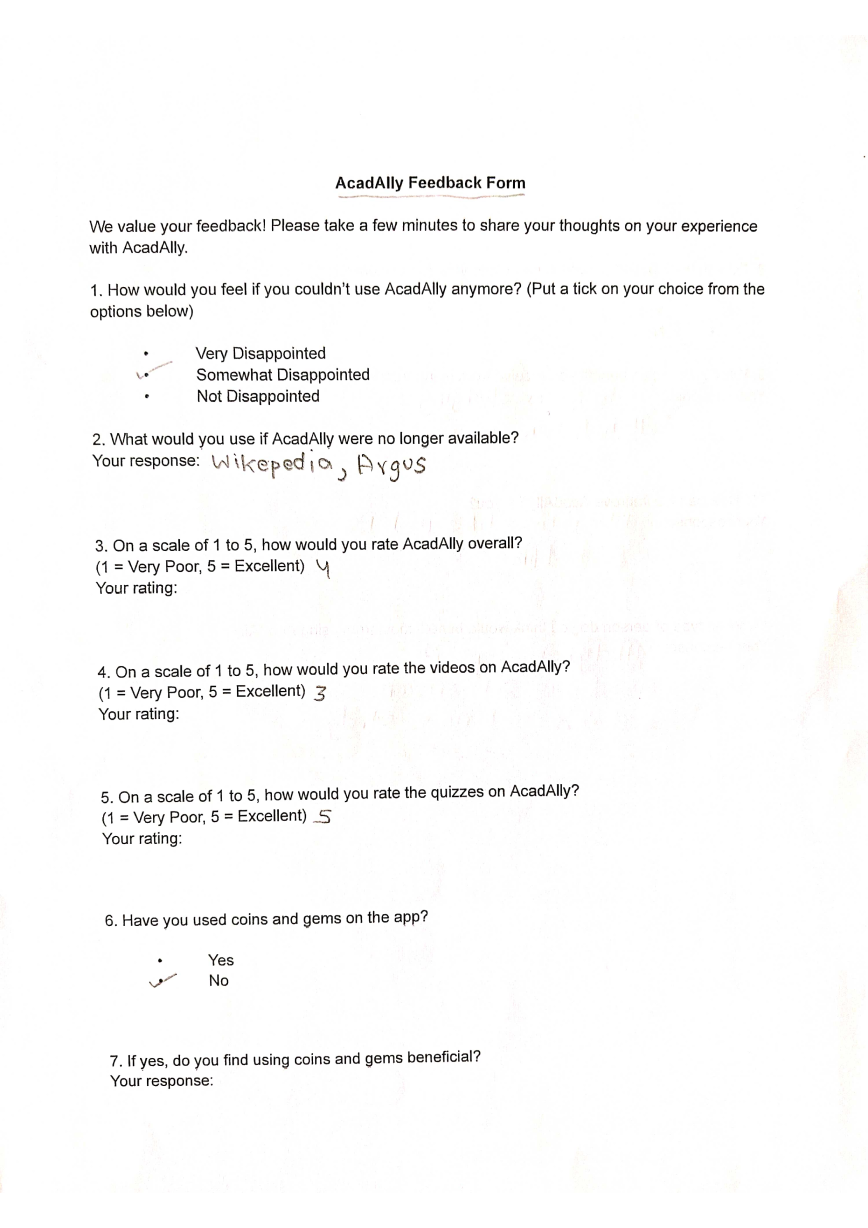 AcadAlly Feedback Form
We value your feedback! Please take a few minutes to share your thoughts on your experience
with AcadAlly.
1. How would you feel if you couldn't use AcadAlly anymore? (Put a tick on your choice from the
options below)
• Very Disappointed
✓• Somewhat Disappointed
• Not Disappointed
2. What would you use if AcadAlly were no longer available?
Your response: Wikepedia, Argus
3. On a scale of 1 to 5, how would you rate AcadAlly overall?
(1 = Very Poor, 5 = Excellent) 4
Your rating:
4. On a scale of 1 to 5, how would you rate the videos on AcadAlly?
(1 = Very Poor, 5 = Excellent) 3
Your rating:
5. On a scale of 1 to 5, how would you rate the quizzes on AcadAlly?
(1 = Very Poor, 5 = Excellent) 5
Your rating:
6. Have you used coins and gems on the app?
• Yes
✓• No
7. If yes, do you find using coins and gems beneficial?
Your response: